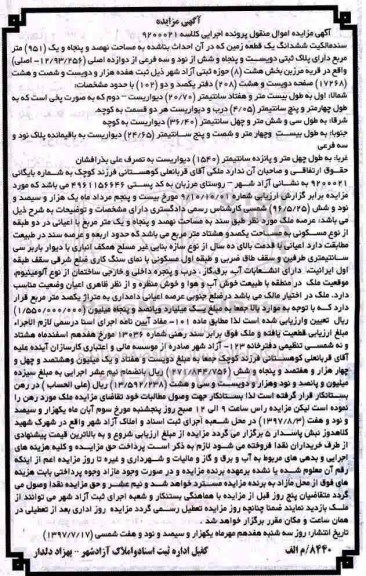 آگهی مزایده
آگهی مزایده اموال منقول پرونده اجرایی کلاسه ۹۲۰۰۰۲۱
سندمالکیت ششدانگ یک قطعه زمین که در آن احداث بناشده به مساحت نهصد و پنجاه و یک (۹۵۱) متر
مربع دارای پلاک ثبتی دویست و پنجاه و شش از نود و سه فرعی از دوازده اصلی (۱۲/۹۳/۲۵۶- اصلی)
واقع در قریه مرزبن بخش هشت (۸) حوزه ثبتی آزاد شهر ذیل ثبت هفده هزار و دویست و شصت و هشت
(۱۷۲۶۸) صفحه دویست و هشت (۲۰۸) دفتر یکصد و دو (۱۰۲) با حدود مشخصات:
شمالا: اول به طول بیست متر و هفتاد سانتیمتر (۲۰/۷۰) دیواریست – دوم که به صورت پخی است که به
طول چهارمتر و پنج سانتیمتر (۴/۰۵) درب و دیواریست هر دو قسمت به کوچه.
شرقا: به طول سی و شش متر و چهل سانتیمتر (۳۶/۴۰) دیواریست به کوچه
جنوبا: به طول بیست وچهار متر و شصت و پنج سانتیمتر (۲۴/۶۵) دیواریست به باقیمانده پلاک نود و
سه فرعی
غربا: به طول چهل متر و پانزده سانتیمتر دیواریست به تصرف علی بذرافشان
حقوق ارتفاقی و صاحبان آن ندارد ملکی آقای قربانعلی کوهستانی فرزند کوچک به شماره بایگانی
۹۲۰۰۰۲۱ به نشانی آزاد شهر – روستای مرزبان به کد پستی ۴۹۶۱۱۵۶۶۴۶ می باشد که مورد
مزایده برابر گزارش ارزیابی شماره مورخ بیست و پنجم مرداد ماه یک هزار و سیصد و
نود و شش (۹۶/۵/۲۵) شمسی کارشناس رسمی دادگستری دارای مشخصات و توضیحات به شرح ذیل
می باشد: عرصه ملک مورد نظر طبق سند به مساحت نهصد و پنجاه و یک متر مربع با اعیانی در دو طبقه
از نوع مسکونی به مساحت یکصد و هشتاد متر مربع می باشد که حدود اربعه و عرصه سند در طبیعت
مطابقت دارد اعیانی با قدمت بالای ده سال از نوع سازه بنایی غیر مسلح همکف انباری با دیوار باربر سی
سانتیمتری طرفین سقف طاق ضربی و طبقه اول مسکونی با نمای سنگ کاری ضلع شرقی سقف طبقه
اول ایرانیت. دارای انشعابات آب، برق،گاز ، درب و پنجره داخلی و خارجی ساختمان از نوع آلومینیوم
موقعیت ملک در منطقه با طبیعت خوش آب و هوا و خوش منظره و از نظر ظاهری اعیان وضعیت مناسب
دارد. ملک در اختیار مالک می باشد درضلع جنوبی عرصه اعیانی دامداری به متراژ یکصد متر مربع قرار
دارد که با توجه به موارد بالا جمعا به مبلغ یک میلیارد وپانصد و پنجاه میلیون (۱/۵۵۰/۰۰۰/۰۰۰)
ریال تعیین وارزیابی شده است لذا مطابق ماده ۱۰۱- مفاد آیین نامه اجرای اسناد رسمی لازم الاجراء
مبلغ ارزیابی قطعیت یافته و ملک فوق برابر سند رهنی شماره ۱۳۰۳۶ مورخ هفدهم اسفندماه هشتاد
و نه شمسی تنظیمی دفترخانه ۱۲۳- آزاد شهر صادره از موسسه مالی و اعتباری کارسازان آینده علیه
آقای قربانعلی کوهستانی فرزند کوچک جمعا به مبلغ دویست و هفتاد و یک میلیون وهشتصد و چهل و
چهار هزار و هفتصد و پنجاه و شش (۲۷۱/۸۴۴/۷۵۶) ریال بانضمام نیم عشر اجرایی به مبلغ سیزده
میلیون و پانصد و نود وهزار و دویست و سی و هشت (۱۳/۵۹۲/۲۳۸) ریال (علی الحساب) در رهن
بستانکار قرار گرفته است لذا بستانکار جهت وصول مطالبات خود تقاضای مزایده ملک مورد رهن را
نموده است لیکن مزایده راس ساعت ۹ الی ۱۲ صبح روز پنجشنبه مورخ سوم آبان ماه یکهزار و سیصد
و نود و هفت (۱۳۹۷/۸/۳) در محل شعبه اجرای ثبت اسناد و املاک آزاد شهر واقع در شهرک شهید
کلاهدوز نبش پاسدار ۵ برگزار می گردد مزایده از مبلغ ارزیابی شروع و به بالاترین قیمت پیشنهادی
از طرف خریداران نقدا فروخته می شود لازم به ذکر است پرداخت حق مزایده و کلیه هزینه های
اجرایی و بدهی های مربوط به آب و برق و گاز و مالیات و شهرداری و غیره تا روز مزایده اعم از اینکه
رقم آن معلوم شده یا نشده برعهده برنده مزایده و در صورت وجود مازاد وجوه پرداختی بابت هزینه
های فوق از محل مازاد به برنده مزایده مسترد خواهد شد و نیم عشر و حق مزایده نقدا وصول می
گردد متقاضیان پنج روز قبل از مزایده با هماهنگی بستانکار و شعبه اجرای ثبت آزاد شهر می توانند از
ملک بازدید نمایند ضمنا چنانچه روز مزایده تعطیل رسمی گردد مزایده روز اداری بعد از تعطیلی در
همان ساعت و مکان مقرر برگزار خواهد شد .
تاریخ انتشار: روز سه شنبه هفدهم مهرماه یکهزار و سیصد و نود و هفت شمسی (۱۳۹۷/۷/۱۷)
۸۴۴۰/م الف کفیل اداره ثبت اسنادواملاک آزادشهر – بهزاد دلدار